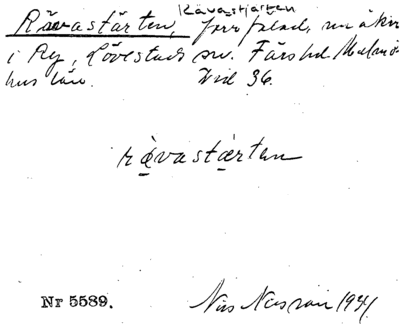 Rävastärten, Rävastjärten
förr palads, nu åker
i Ry, Lövestads sn. Färs hd. Malmö-
hus län. Hid 36.
rävastærten
Nr 5589.
Nils Nilsson 1941